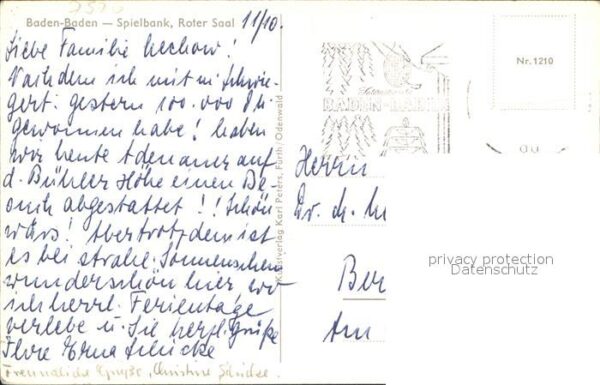 Baden-Baden — Spielbank, Roter Saal
11/10.
Liebe Familie Lechow!
Nachdem ich mit m. Schwie-
gert. gestern 100.000 Ph.
gewonnen habe! haben
wir heute Adenauer auf
d. Bühler Höhe einen Be-
such abgestattet!! Schön
wärs! Aber trotzdem ist
es bei strahl. Sonnenschein
wunderschön hier, wo
ich herrl. Ferientage
verlebe u. Sie herzl. grüße
Ihre Erna
Freundliche Grüße, Christine
Kunstverlag Karl Peters, Fürth/Odenwald
BADEN-BADEN
Nr. 1210
Herrn
Dr. ch.
Ber
Am
privacy protection
Datenschutz